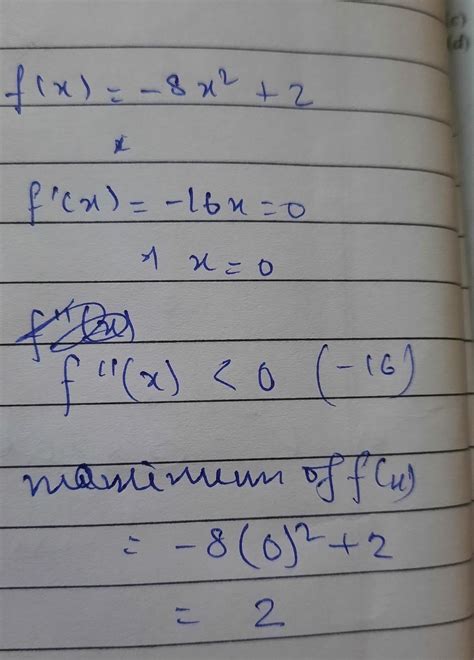 (c)
(d)
f(x) = -8x² + 2
x
f'(x) = -16x = 0
x = 0
f''(x)
f''(x) < 0 (-16)
maximum of f(x)
= -8(0)² + 2
= 2